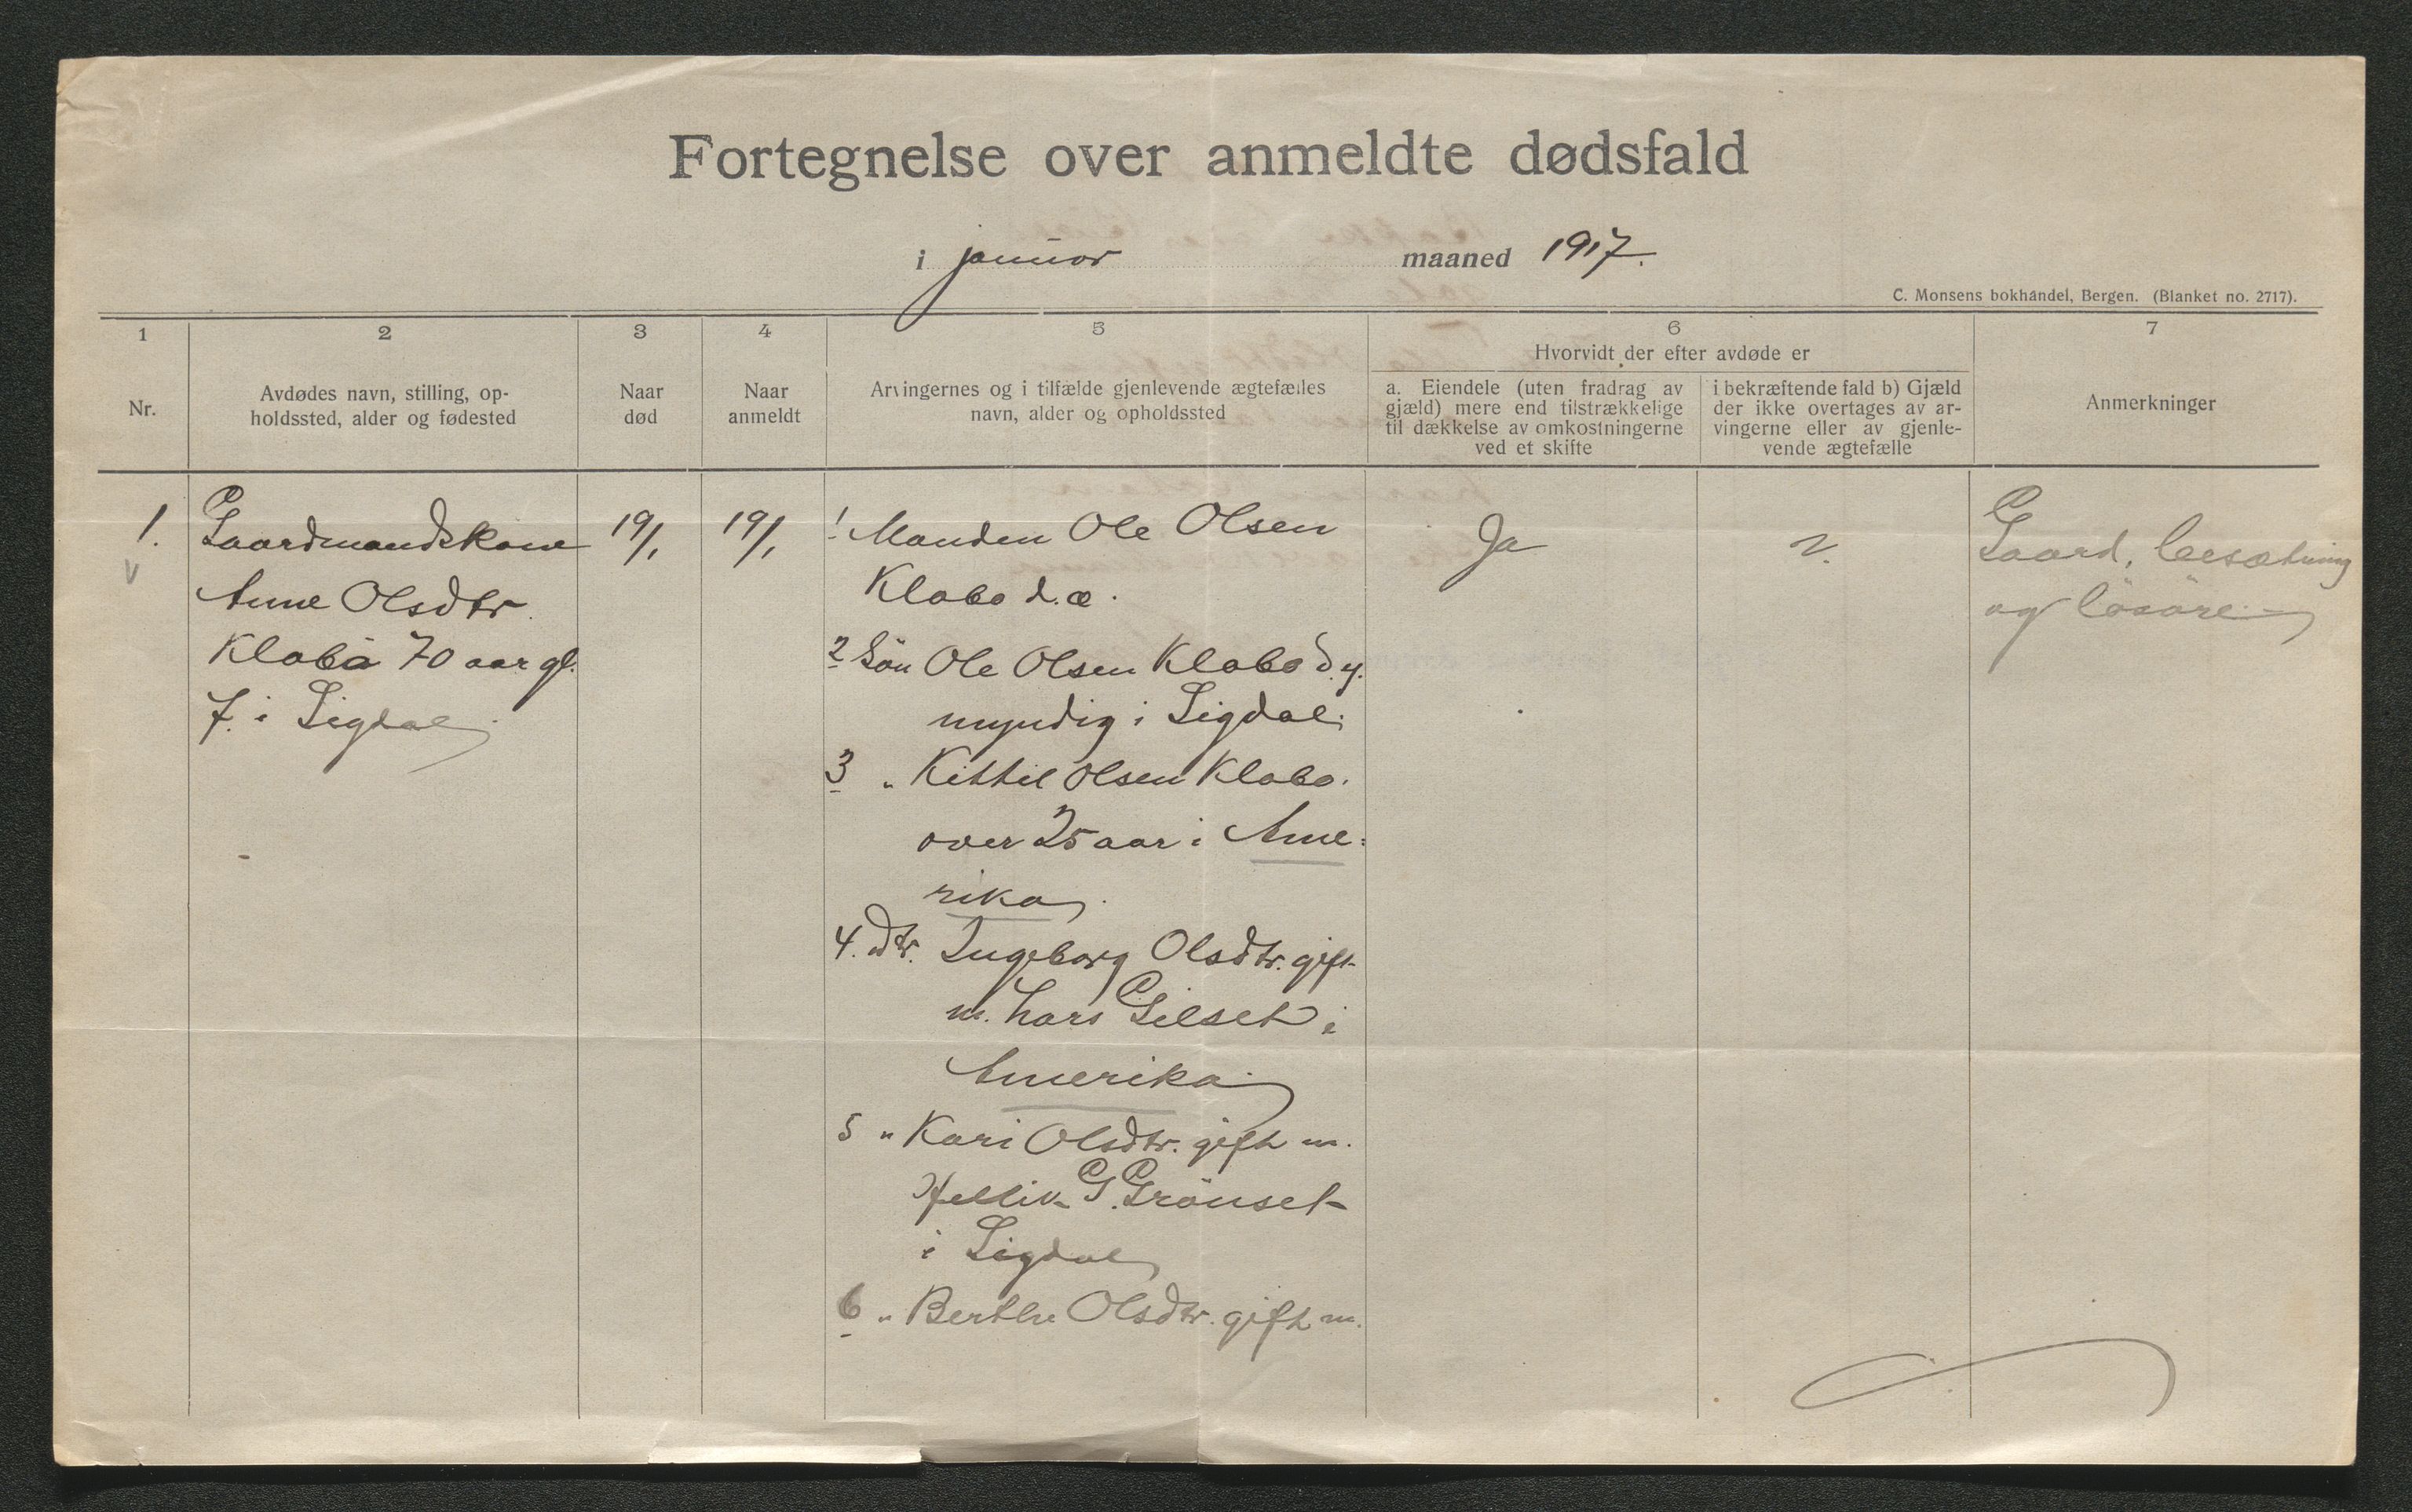 Fortegnelse over anmeldte dødsfald
i januar maaned 1917.
C. Monsens bokhandel, Bergen. (Blanket no. 2717).
1
2
3
4
5
6
7
Nr.
Avdødes navn, stilling, op-
holdssted, alder og fødested
Naar
død
Naar
anmeldt
Arvingernes og i tilfælde gjenlevende ægtefælles
navn, alder og opholdssted
Hvorvidt der efter avdøde er
a. Eiendele (uten fradrag av
gjæld) mere end tilstrækkelige
til dækkelse av omkostningerne
ved et skifte
i bekræftende fald b) Gjæld
der ikke overtages av ar-
vingerne eller av gjenle-
vende ægtefælle
Anmerkninger
1.
Gaardmandskone
Anne Olsdtr.
Klaba 70 aar gl.
f. i Sigdal
19/1
19/1
1 Manden Ole Olsen
Klabo d.æ.
2 Sön Ole Olsen Klabo d.y.
myndig i Sigdal.
3 " Kittil Olsen Klabo.
over 25 aar i Ame-
rika
4. dtr. Ingeborg Olsdtr. gift
m. Lars Gilset i
Amerika
5 " Kari Olsdtr. gift m.
G. Grönset
i Sigdal
6 " Berthe Olsdtr. gift m.
Ja
Gaard, besætning
og lösöre.